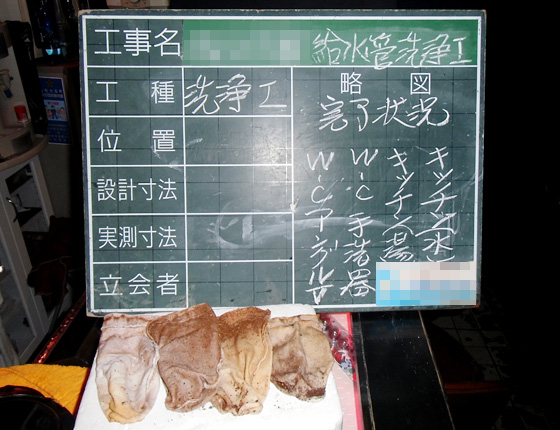 工事名 給水管洗浄工
工種 洗浄工
略図
完了状況
位置
設計寸法
実測寸法
立会者
キッチン水
キッチン湯
W・C 手洗器
W・C アングル